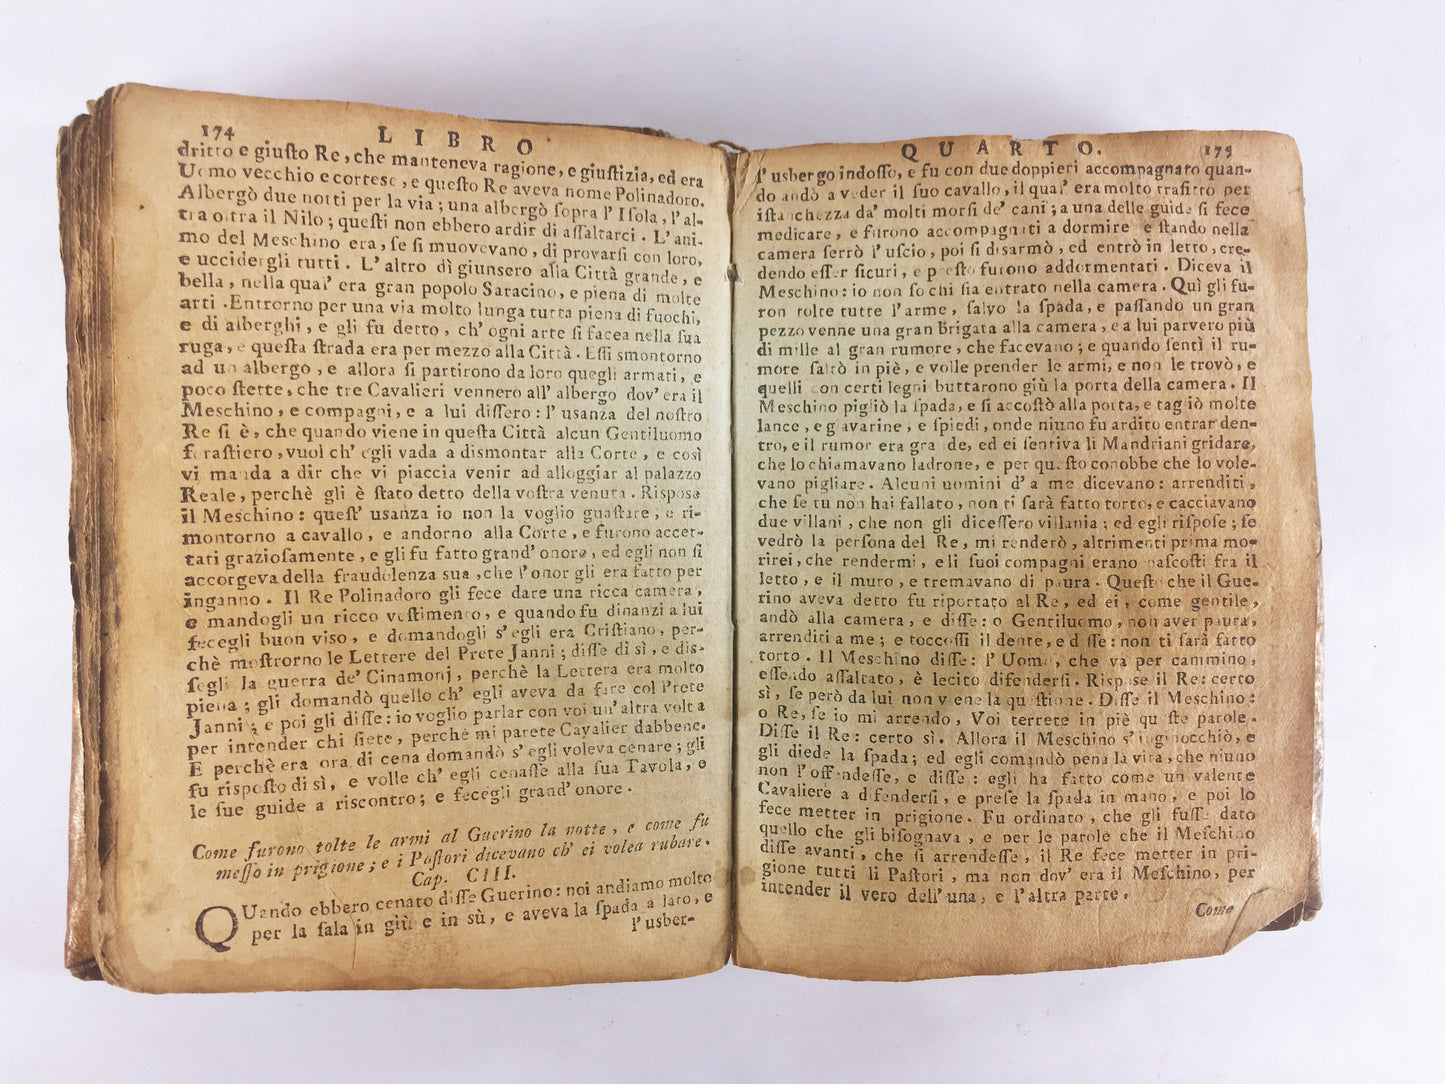 174 LIBRO
dritto e giuſto Re, che manteneva ragione, e giuſtizia, ed era
Uomo vecchio e cortese, e queſto Re aveva nome Polinadoro.
Albergò due notti per la via; una albergò ſopra l'Iſola, l'al-
tra oltra il Nilo; queſti non ebbero ardir di aſſaltarci. L'ani-
mo del Meschino era, ſe ſi muovevano, di provarſi con loro,
e uccidergli tutti. L'altro dì giunsero alla Città grande, e
bella, nella qual' era gran popolo Saracino, e piena di molte
arti. Entrorno per una via molto lunga tutta piena di fuochi,
e di alberghi, e gli fu detto, ch' ogni arte ſi facea nella ſua
ruga, e queſta ſtrada era per mezzo alla Città. Eſſi smontorno
ad un albergo, e allora ſi partirono da loro quegli armati, e
poco ſtette, che tre Cavalieri vennero all' albergo dov' era il
Meschino, e compagni, e a lui diſſero: l' usanza del noſtro
Re ſi è, che quando viene in queſta Città alcun Gentiluomo
foraſtiero, vuol ch' egli vada a dismontar alla Corte, e così
vi manda a dir che vi piaccia venir ad alloggiar al palazzo
Reale, perchè gli è ſtato detto della voſtra venuta. Rispose
il Meschino: queſt' usanza io non la voglio guaſtare, e ri-
montorno a cavallo, e andorno alla Corte, e furono accet-
tati grazioſamente, e gli fu fatto grand' onore, ed egli non ſi
accorgeva della fraudolenza sua, che l'onor gli era fatto per
inganno. Il Re Polinadoro gli fece dare una ricca camera,
e mandogli un ricco veſtimento, e quando fu dinanzi a lui
fecegli buon viso, e domandogli s'egli era Criſtiano, per-
chè moſtrorno le Lettere del Prete Janni; diſſe di sì, e dis-
ſegli la guerra de' Cinamonj, perchè la Lettera era molto
piena; gli domandò quello ch' egli aveva da fare col Prete
Janni; e poi gli diſſe: io voglio parlar con voi un'altra volta
per intender chi ſiete, perchè mi parete Cavalier dabbene.
E perchè era ora di cena domandò s'egli voleva cenare; gli
fu riſpoſto di sì, e volle ch' egli cenaſſe alla ſua Tavola, e
le ſue guide a riscontro; e fecegli grand' onore.
Come furono tolte le armi al Guerino la notte, e come fu
meſſo in prigione; e i Paſtori dicevano ch' ei volea rubare.
Cap. CIII.
QUando ebbero cenato diſſe Guerino: noi andiamo molto
per la ſala in giù e in sù, e aveva la ſpada a lato, e
l'usber-
QUARTO. 175
l'usbergo indoſſo, e fu con due doppieri accompagnato quan-
do andò a veder il ſuo cavallo, il qual' era molto trafitto per
iſtanchezza da' molti morsi de' cani; a una delle guide ſi fece
medicare, e furono accompagnati a dormire e ſtando nella
camera ſerrò l'uſcio, poi ſi disarmò, ed entrò in letto, cre-
dendo eſſer ſicuri, e preſto furono addormentati. Diceva il
Meschino: io non ſo chi ſia entrato nella camera. Quì gli fu-
ron tolte tutte l'arme, ſalvo la ſpada, e paſſando un gran
pezzo venne una gran Brigata alla camera, e a lui parvero più
di mille al gran rumore, che facevano; e quando ſentì il ru-
more ſaltò in piè, e volle prender le armi, e non le trovò, e
quelli con certi legni buttarono giù la porta della camera. Il
Meschino pigliò la ſpada, e ſi accoſtò alla porta, e tagliò molte
lance, e giavarine, e ſpiedi, onde niuno fu ardito entrar den-
tro, e il rumor era grande, ed ei ſentiva li Mandriani gridare,
che lo chiamavano ladrone, e per queſto conobbe che lo vole-
vano pigliare. Alcuni uomini d'arme dicevano: arrenditi,
che ſe tu non hai fallato, non ti ſarà fatto torto, e cacciavano
due villani, che non gli diceſſero villania; ed egli riſpose; ſe
vedrò la perſona del Re, mi renderò, altrimenti prima mo-
rirei, che rendermi, e li ſuoi compagni erano naſcoſti fra il
letto, e il muro, e tremavano di paura. Queſto che il Gue-
rino aveva detto fu riportato al Re, ed ei, come gentile,
andò alla camera, e diſſe: o Gentiluomo, non aver paura,
arrenditi a me; e toccoſſi il dente, e diſſe: non ti ſarà fatto
torto. Il Meschino diſſe: l'Uomo, che va per cammino,
eſſendo aſſaltato, è lecito difenderſi. Rispose il Re: certo
sì, ſe però da lui non viene la queſtione. Diſſe il Meschino:
o Re, ſe io mi arrendo, Voi terrete in piè queſte parole.
Diſſe il Re: certo sì. Allora il Meschino s'inginocchiò, e
gli diede la ſpada; ed egli comandò pena la vita, che niuno
non l'offendeſſe, e diſſe: egli ha fatto come un valente
Cavaliere a difenderſi, e preſe la ſpada in mano, e poi lo
fece metter in prigione. Fu ordinato, che gli fuſſe dato
quello che gli bisognava, e per le parole che il Meſchino
diſſe avanti, che ſi arrendeſſe, il Re fece metter in pri-
gione tutti li Paſtori, ma non dov' era il Meſchino, per
intender il vero dell'una, e l'altra parte.
Come